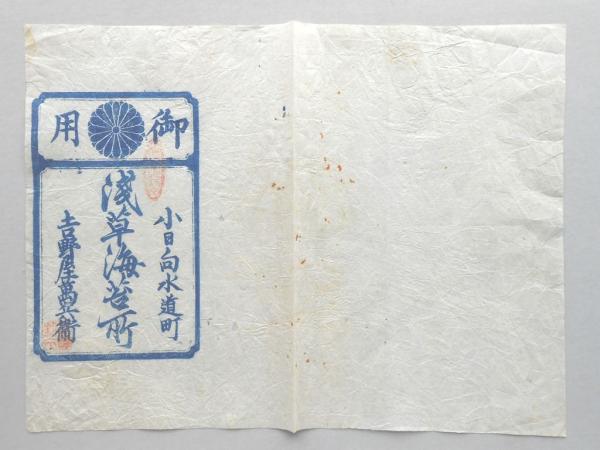 御用
小日向水道町
浅草海苔所
吉野屋萬兵衛